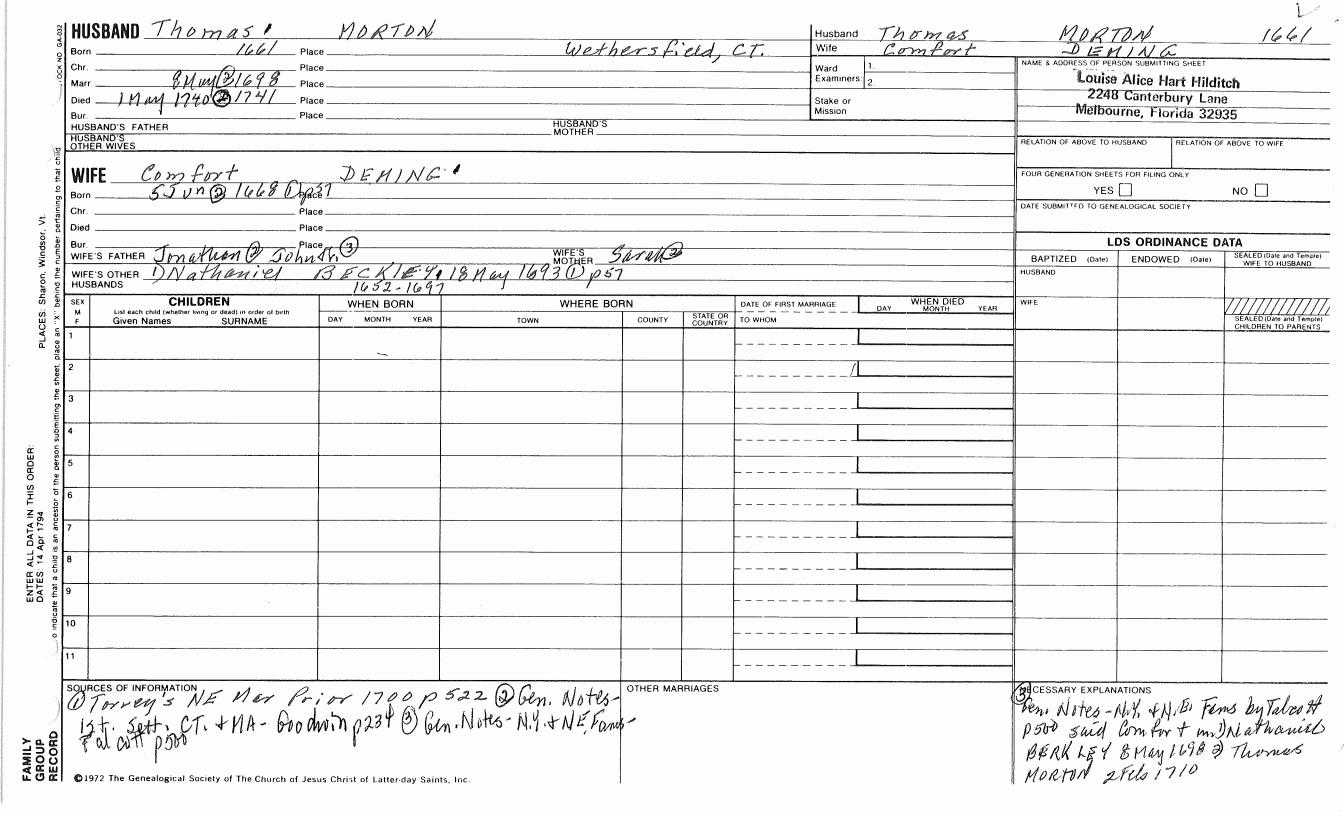 HUSBAND Thomas MORTON
Born 1661 Place Wethersfield, CT.
Chr. Place
Marr 8 May ② 1698 Place
Died 1 May 1740 ② 1741 Place
Bur. Place
HUSBAND'S FATHER HUSBAND'S MOTHER
HUSBAND'S OTHER WIVES
WIFE Comfort DEMING
Born 5 Jun ② 1668 ① p57 Place
Chr. Place
Died Place
Bur. Place
WIFE'S FATHER Jonathan ② John Jr. ③ WIFE'S MOTHER Sarah ③
WIFE'S OTHER HUSBANDS 1) Nathaniel BECKLEY, 18 May 1693 ① p57
1652-1697
Husband Thomas MORTON 1661
Wife Comfort DEMING
Ward 1.
Examiners: 2.
Stake or Mission
NAME & ADDRESS OF PERSON SUBMITTING SHEET
Louise Alice Hart Hilditch
2248 Canterbury Lane
Melbourne, Florida 32935
RELATION OF ABOVE TO HUSBAND RELATION OF ABOVE TO WIFE
FOUR GENERATION SHEETS FOR FILING ONLY
YES NO
DATE SUBMITTED TO GENEALOGICAL SOCIETY
LDS ORDINANCE DATA
BAPTIZED (Date) ENDOWED (Date) SEALED (Date and Temple) WIFE TO HUSBAND
HUSBAND
WIFE
SEALED (Date and Temple) CHILDREN TO PARENTS
SEX M F
CHILDREN
List each child (whether living or dead) in order of birth
Given Names SURNAME
WHEN BORN
DAY MONTH YEAR
WHERE BORN
TOWN COUNTY STATE OR COUNTRY
DATE OF FIRST MARRIAGE
TO WHOM
WHEN DIED
DAY MONTH YEAR
1
2
3
4
5
6
7
8
9
10
11
SOURCES OF INFORMATION
① Torrey's NE Mar Prior 1700 p522 ② Gen. Notes-
1st. Sett. CT. & MA - Goodwin p234 ③ Gen. Notes - N.Y. & NE, Fams-
Talcott p500
OTHER MARRIAGES
NECESSARY EXPLANATIONS
③ Gen. Notes - N.Y. & N.E. Fams by Talcott
p500 said Comfort m. 1) Nathaniel
BERKLEY 8 May 1698 2) Thomas
MORTON 2 Feb 1710
©1972 The Genealogical Society of The Church of Jesus Christ of Latter-day Saints, Inc.
FAMILY GROUP RECORD
ENTER ALL DATA IN THIS ORDER:
DATES: 14 Apr 1794 PLACES: Sharon, Windsor, Vt.
o indicate that a child is an ancestor of the person submitting the sheet, place an "X" behind the number pertaining to that child
OCK NO GA-032